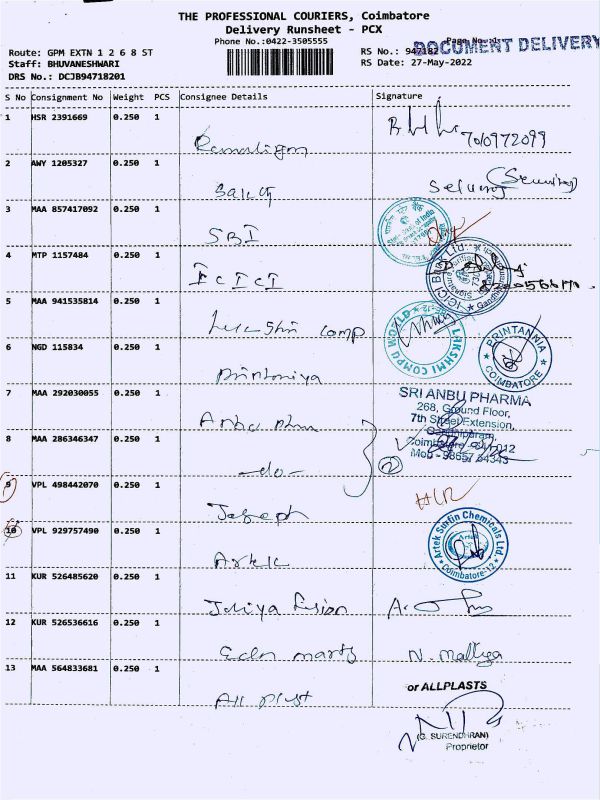 THE PROFESSIONAL COURIERS, Coimbatore
Delivery Runsheet - PCX
Phone No.:0422-3505555
Page No.:1
DOCUMENT DELIVERY
Route: GPM EXTN 1 2 6 8 ST
RS No.: 947182
Staff: BHUVANESHWARI
RS Date: 27-May-2022
DRS No.: DCJB94718201
S No Consignment No Weight PCS Consignee Details Signature
1 HSR 2391669 0.250 1
7010972099
2 AWY 1205327 0.250 1
3 MAA 857417092 0.250 1
SBI
4 MTP 1157484 0.250 1
ICICI
ICICI Bank Ltd.
5 MAA 941535814 0.250 1
comp
LAKSHMI COMPU WORLD
6 NGD 115834 0.250 1
PRINTANNIA
COIMBATORE
7 MAA 292030055 0.250 1
SRI ANBU PHARMA
268, Ground Floor,
7th Street Extension,
8 MAA 286346347 0.250 1
-do-
2
9 VPL 498442070 0.250 1
Joseph
10 VPL 929757490 0.250 1
Artek Surfin Chemicals Ltd.
Artek
Coimbatore-12
11 KUR 526485620 0.250 1
12 KUR 526536616 0.250 1
N. Malliga
13 MAA 564833681 0.250 1
All plast
or ALLPLASTS
(G. SURENDHRAN)
Proprietor